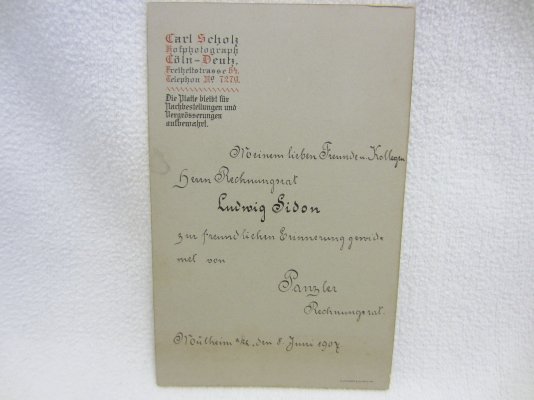 Carl Scholz
Hofphotograph
Cöln-Deutz,
Freiheitstrasse 64.
Telephon No 7270.
Die Platte bleibt für
Nachbestellungen und
Vergrösserungen
aufbewahrt.
Meinem lieben Freunde u. Kollegen
Herrn Rechnungsrat
Ludwig Sidon
zur freundlichen Erinnerung gewid-
met von
Panzler
Rechnungsrat.
Mülheim a/Rh., den 8. Juni 1907